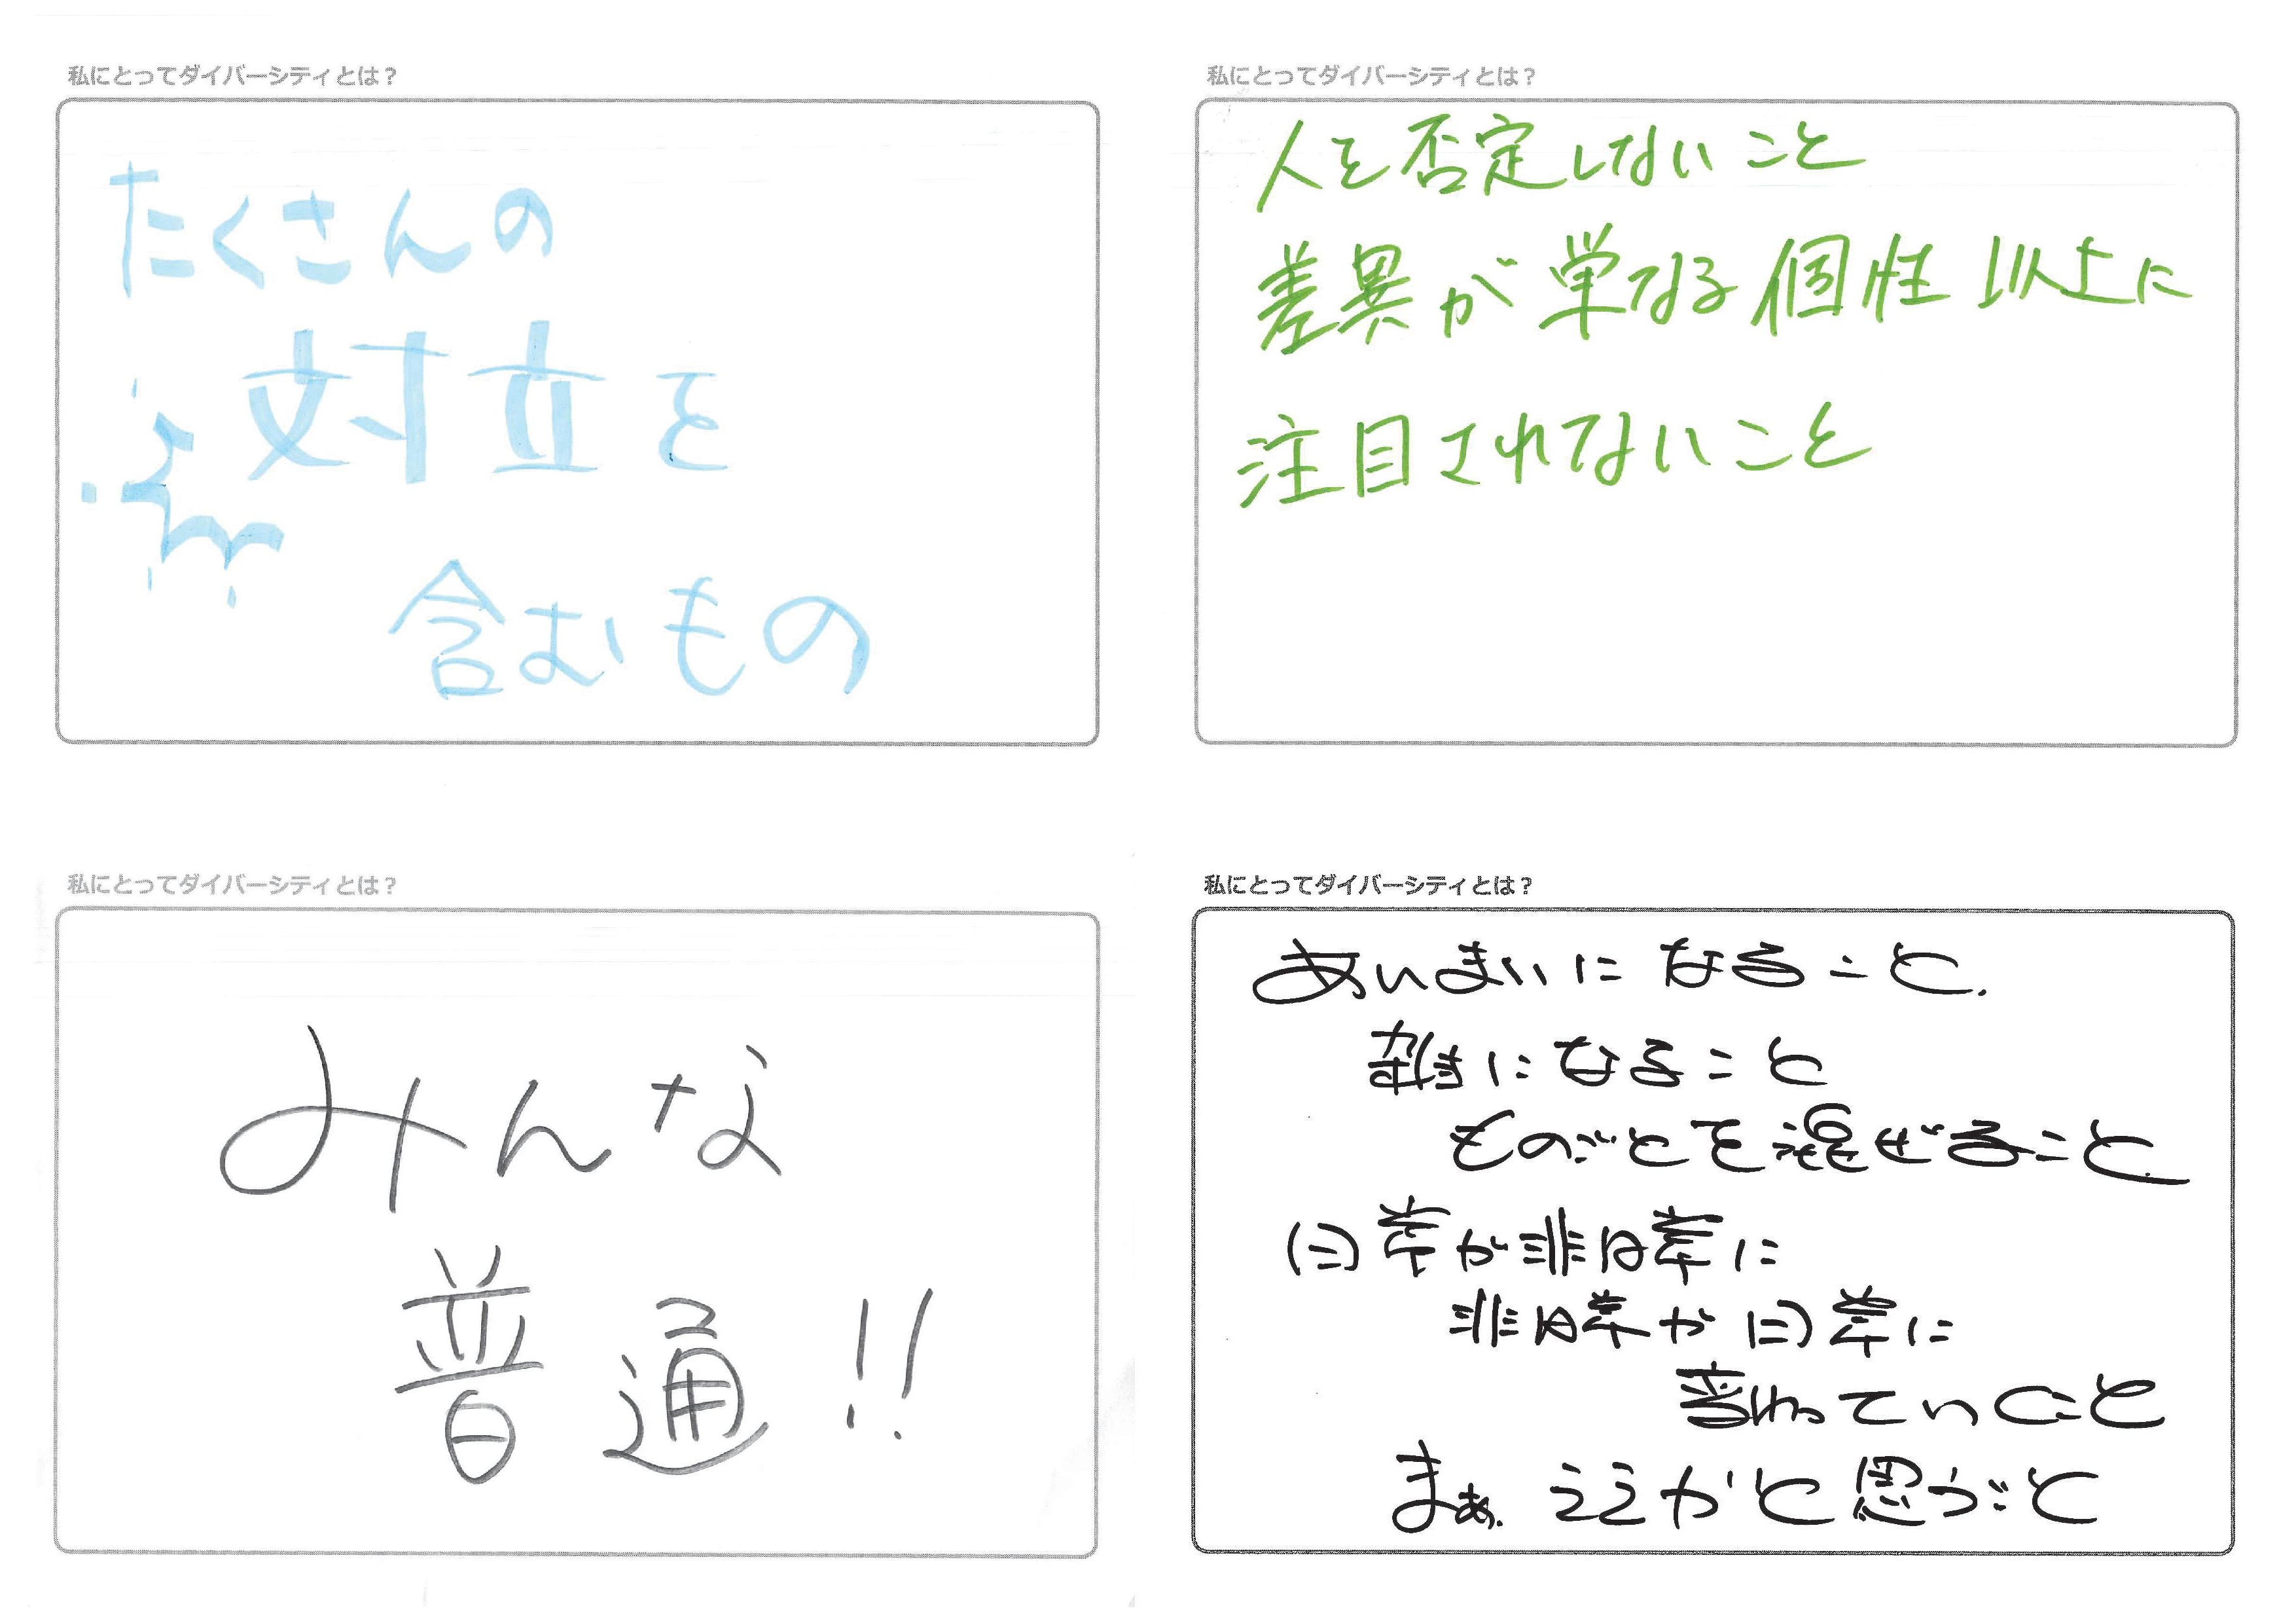 私にとってダイバーシティとは？
たくさんの
対立を
含むもの
私にとってダイバーシティとは？
人を否定しないこと
差異が単なる個性以上に
注目されないこと
私にとってダイバーシティとは？
みんな
普通!!
私にとってダイバーシティとは？
あいまいになること.
雑になること
ものごとを混ぜること.
日常が非日常に
非日常が日常に
変わっていくこと
まぁ ええかと思うこと